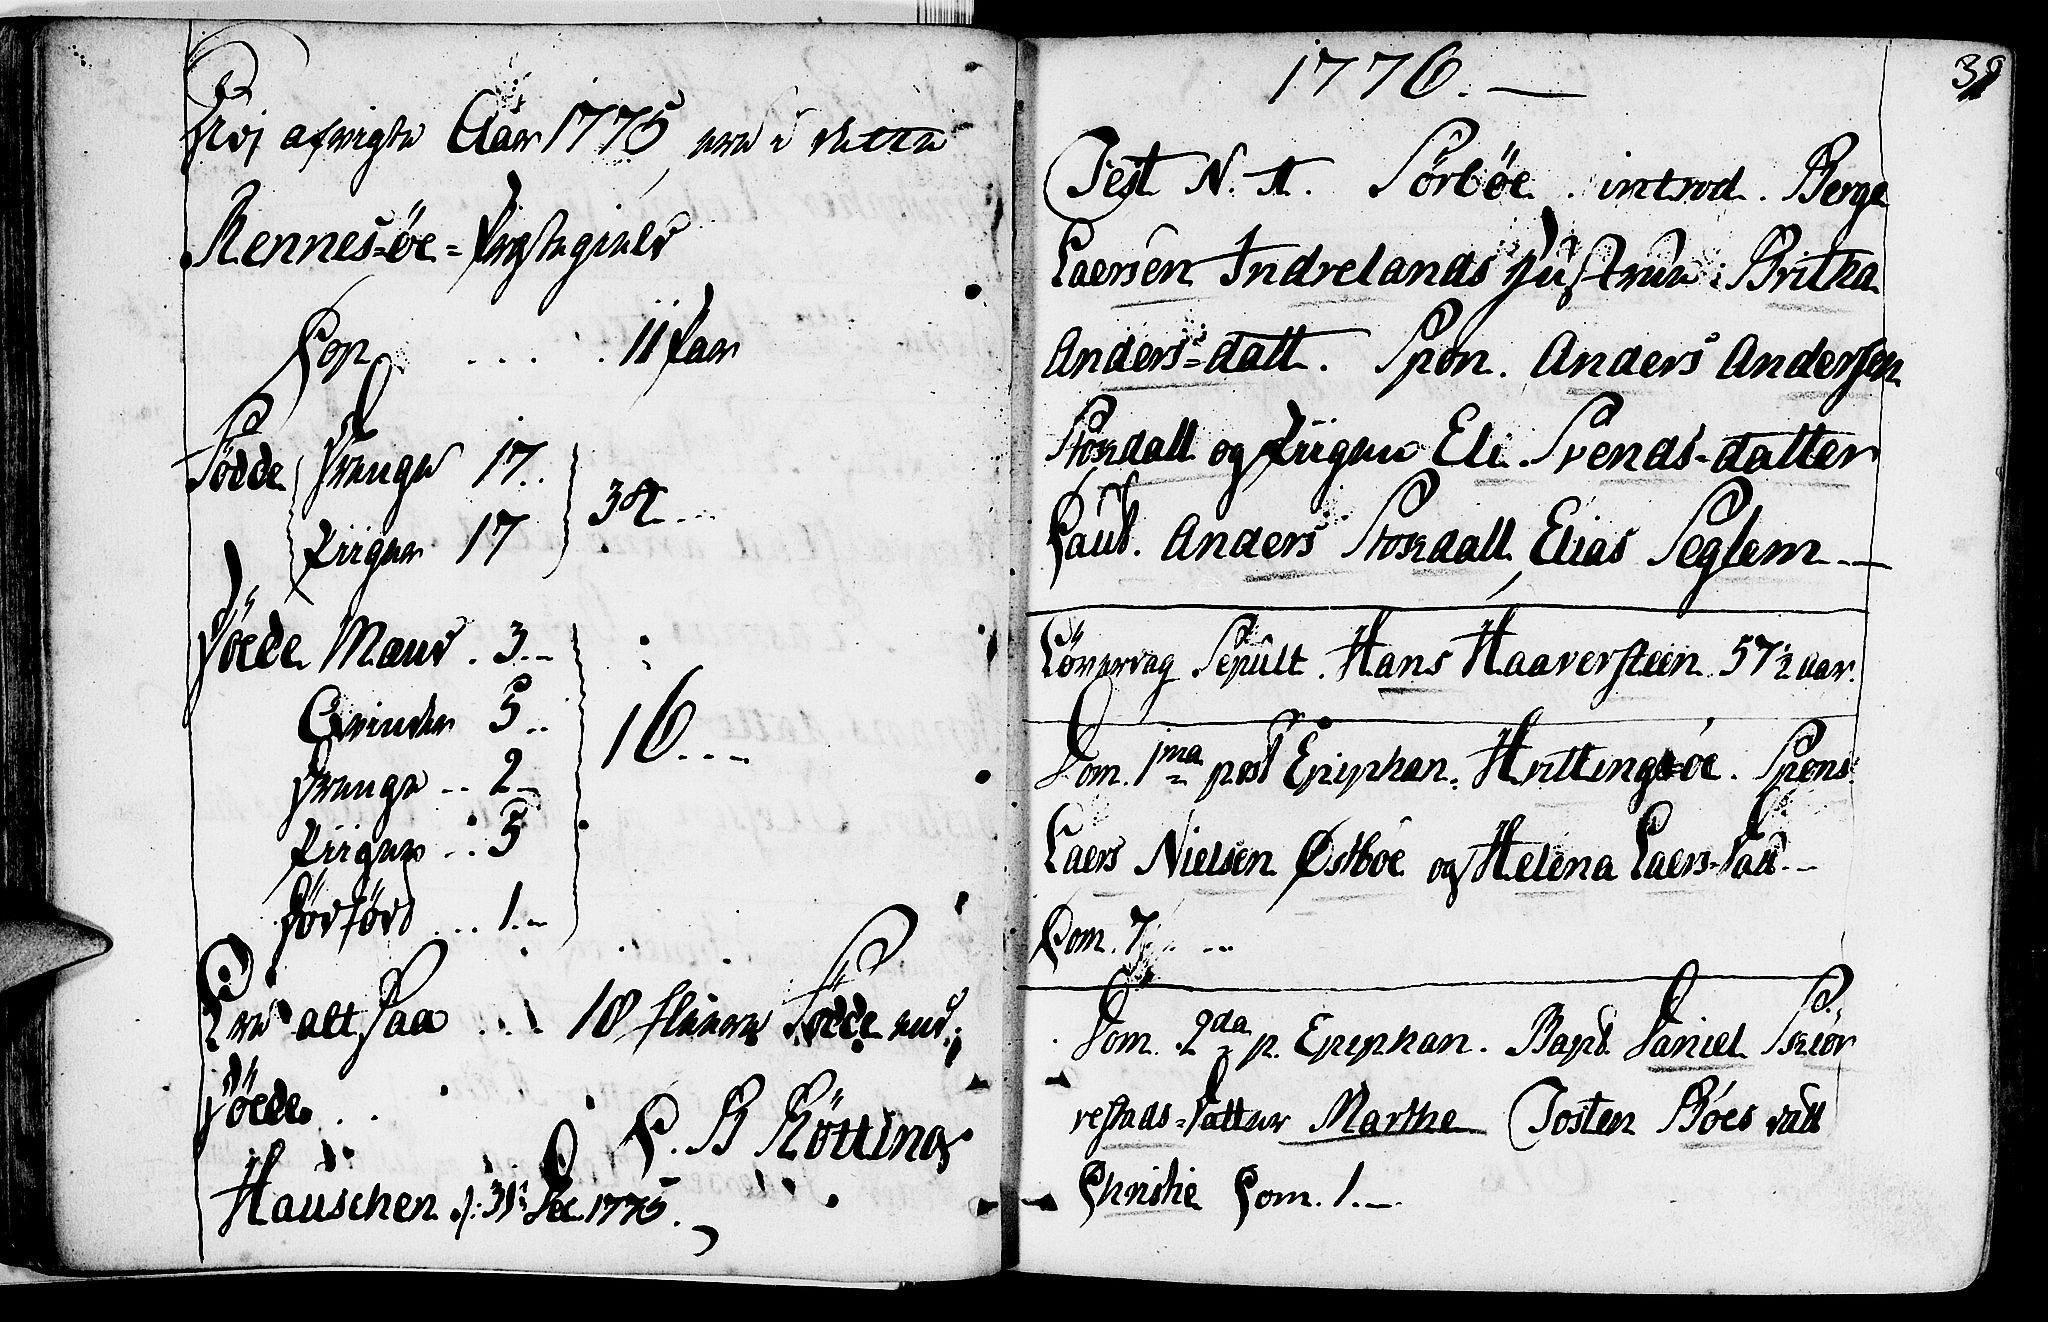 Udj afvigte Aar 1775 ere i dette
Rennes-öe-Præstegield
Cop . . . . 11 Par
Födde Drenge 17..
Piiger 17 34...
Döede Mænd . 3.-
Qvinder 5..
Drenge .. 2-
Piiger .. 5
Dödföd ... 1.-
16...-
Ere alt saa ... 18 fleere Födde end
Döede . .
C. B Rötting
Hauschen d: 31 Dec. 1775.
1776. —
39
Fest N. A. Sörböe . introd . Berge
Laersen Indrelands Hustrue : Britha
Anders=datt. Spon. Anders Andersen
Stordall og Piigen Eli Svends-datter
Caut. Anders Stordall Elias Seglem.—
Löverdag Sepult . Hans Haaversteen 57½ aar.
Dom. 1ma post Epiphan. Hvittingsöe . Spons:
Laers Nielsen Östböe og Helena Laers-datt.-
Com. 7. - --
Dom. 2da p. Epiphan. Bapt. Daniel Skiör
restads-datter Marthe Josten Böes datt
Christie Com. 1.—